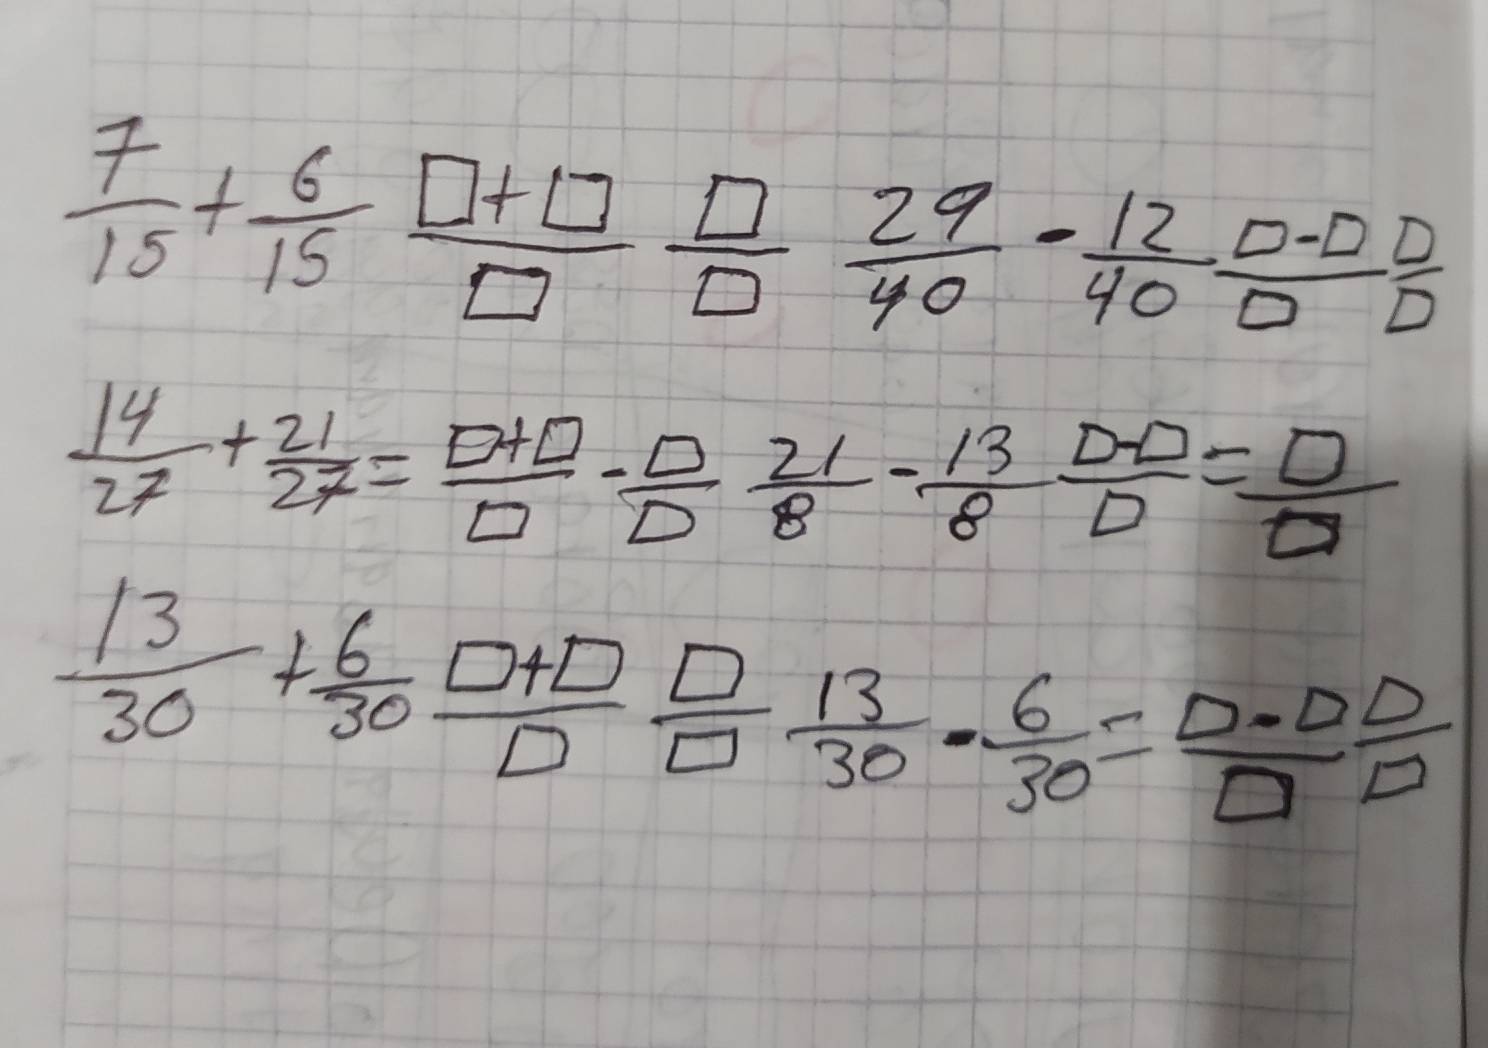 7/15 + 6/15 □+□/□ □/□ 29/40 - 12/40 □-□/□ □/□
14/27 + 21/27 = □+□/□ - □/□ 21/8 - 13/8 □-□/□ = □/□
13/30 + 6/30 □+□/□ □/□ 13/30 - 6/30 = □-□/□ □/□